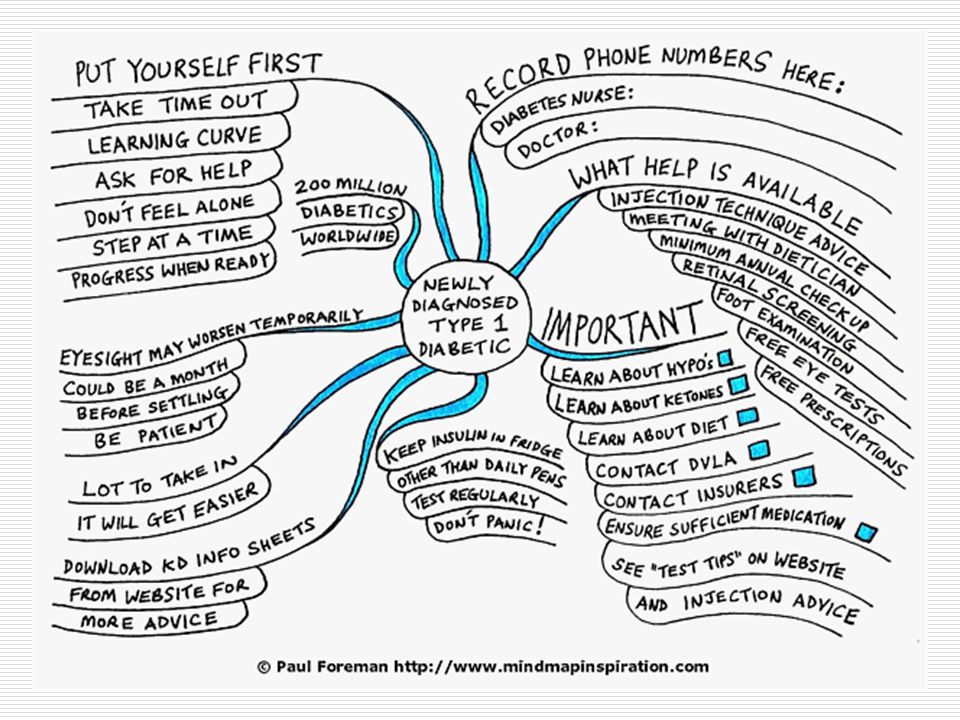 PUT YOURSELF FIRST
TAKE TIME OUT
LEARNING CURVE
ASK FOR HELP
DON'T FEEL ALONE
STEP AT A TIME
PROGRESS WHEN READY
200 MILLION
DIABETICS
WORLDWIDE
RECORD PHONE NUMBERS HERE:
DIABETES NURSE:
DOCTOR:
WHAT HELP IS AVAILABLE
INJECTION TECHNIQUE ADVICE
MEETING WITH DIETICIAN
MINIMUM ANNUAL CHECK UP
RETINAL SCREENING
FOOT EXAMINATION
FREE EYE TESTS
FREE PRESCRIPTIONS
NEWLY
DIAGNOSED
TYPE 1
DIABETIC
EYESIGHT MAY WORSEN TEMPORARILY
COULD BE A MONTH
BEFORE SETTLING
BE PATIENT
IMPORTANT
LEARN ABOUT HYPO'S
LEARN ABOUT KETONES
LEARN ABOUT DIET
CONTACT DVLA
CONTACT INSURERS
ENSURE SUFFICIENT MEDICATION
SEE "TEST TIPS" ON WEBSITE
AND INJECTION ADVICE
LOT TO TAKE IN
IT WILL GET EASIER
KEEP INSULIN IN FRIDGE
OTHER THAN DAILY PENS
TEST REGULARLY
DON'T PANIC!
DOWNLOAD KD INFO SHEETS
FROM WEBSITE FOR
MORE ADVICE
© Paul Foreman http://www.mindmapinspiration.com